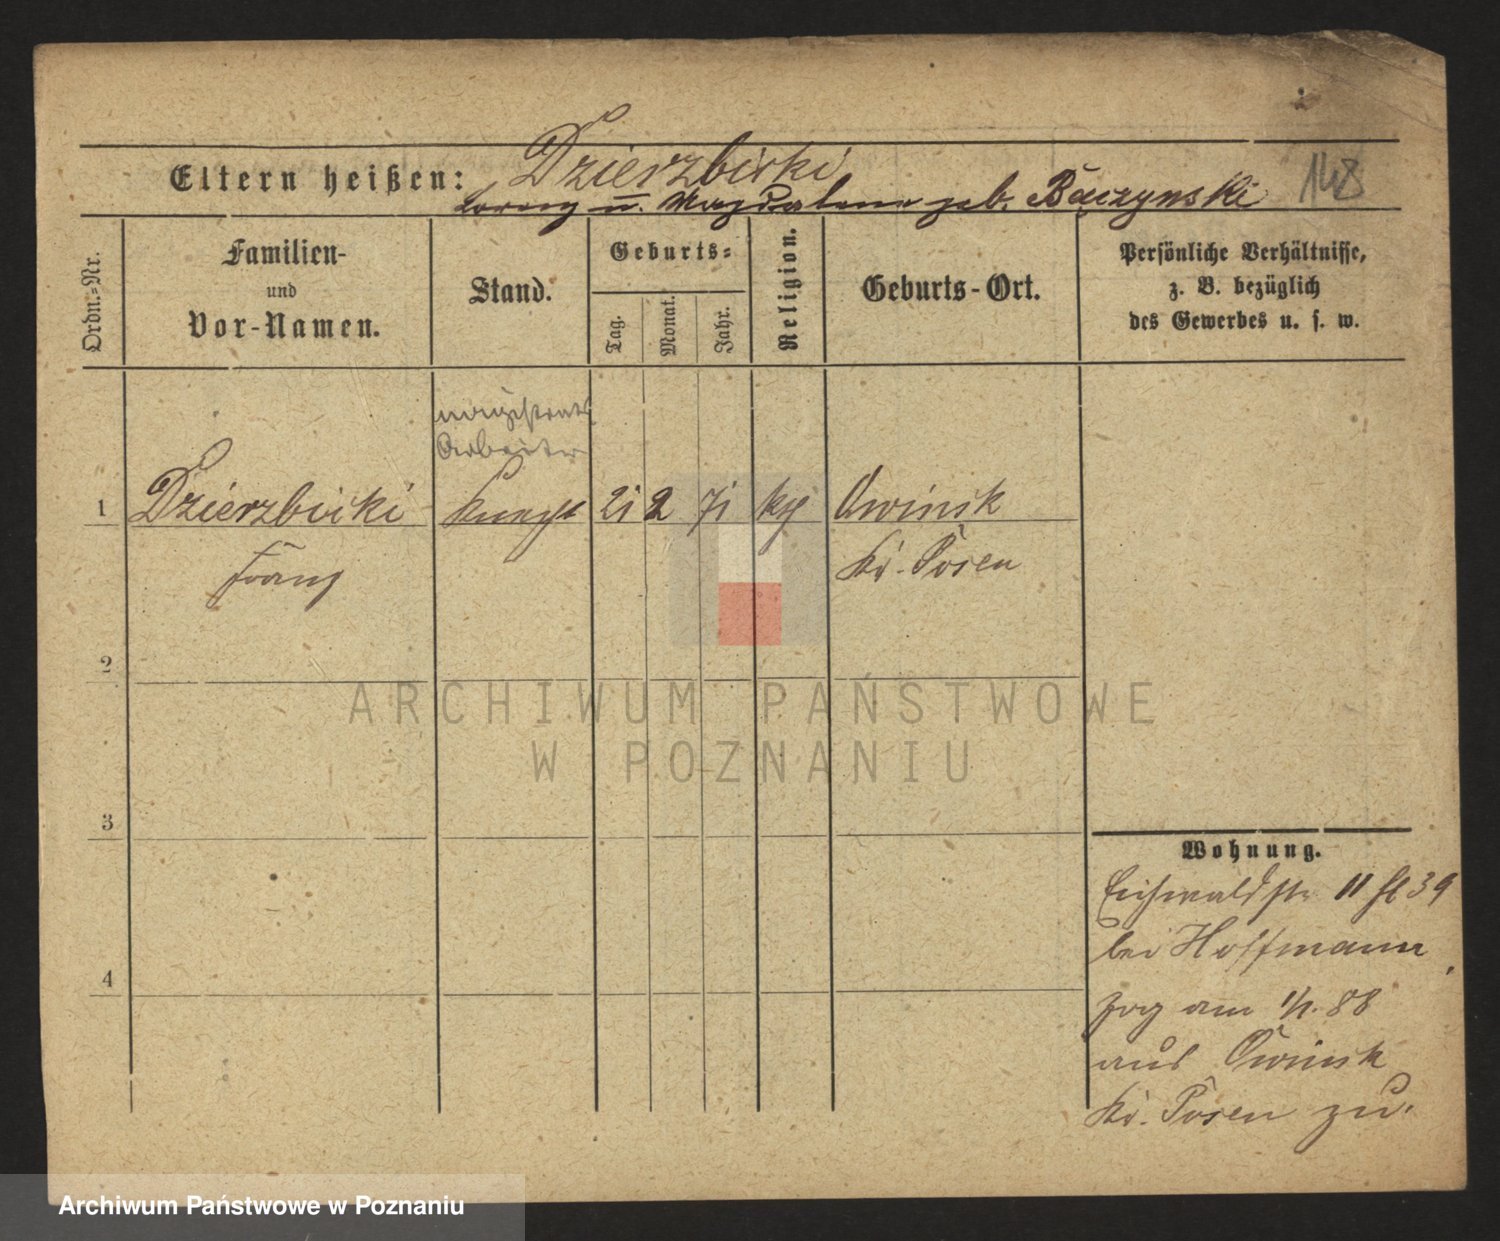 Dzierzbicki
Eltern heißen: Lorenz u. Magdalena geb. Baczynski 148
Ordn.-Nr.
Familien-
und
Vor-Namen.
Stand.
Geburts-
Tag.
Monat.
Jahr.
Religion.
Geburts-Ort.
Persönliche Verhältnisse,
z. B. bezüglich
des Gewerbes u. s. w.
magistrats
Arbeiter
1 Dzierzbicki Knecht 21 2 71 kg Owinsk
Franz Kr. Posen
2
3
4
Wohnung.
Eichwaldstr 11 St 39
bei Hoffmann
zog am 1/1. 88
aus Owinsk
Kr. Posen zu.
ARCHIWUM PAŃSTWOWE
W POZNANIU
Archiwum Państwowe w Poznaniu